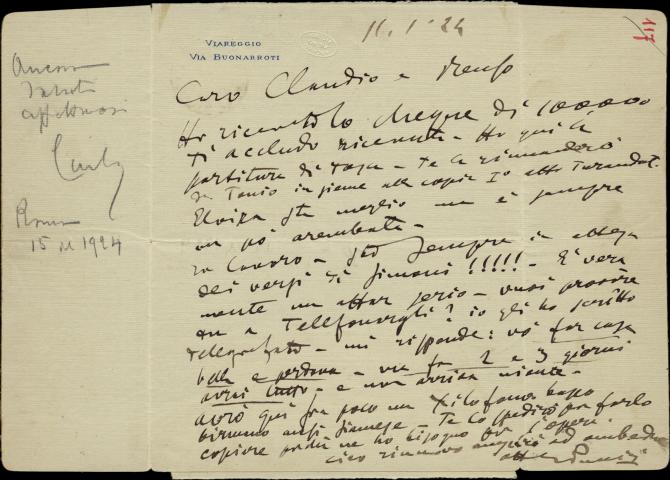 11.1.24
VIAREGGIO
VIA BUONARROTI
Caro Claudio e Renzo
Ho ricevuto lo cheque di 10000
Ti accludo ricevuta - Ho qui la
partitura di - Te la rimanderò
da Tonio insieme alla copia I° atto Turandot.
Elvira sta meglio ma è sempre
un pò
Io lavoro - sto sempre in attesa
dei versi di Simoni !!!!! - È vera
mente un affar serio - vuoi provare
tu a Telefonargli? io gli ho scritto
telegrafato - mi risponde: vò far cosa
bella e perdona - ma fra 2 o 3 giorni
avrai tutto - e non arriva niente -
avrò qui fra poco un Xilofono basso
birmano anzi siamese - Te lo spedirò per farlo
copiare perchè ne ho bisogno per l'opera.
ciao rinnovo auguri ad ambedue
aff Puccini
Ancora
saluti
affettuosi
Carlo
Roma
15 1924